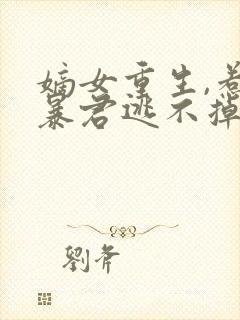 嫡女重生,惹
暴君逃不掉
劉斧